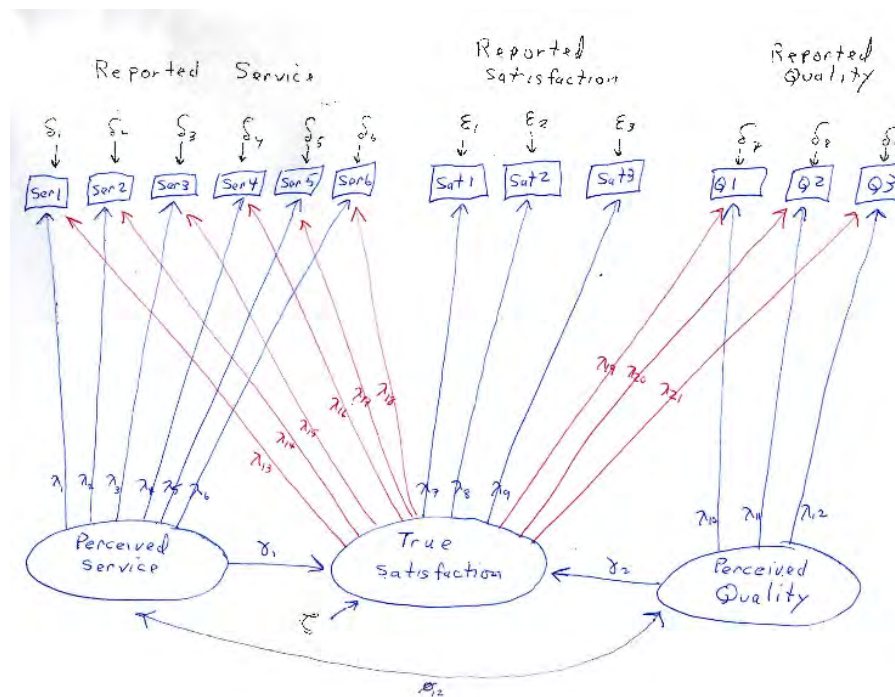 Reported Service
Reported
Satisfaction
Reported
Quality
δ₁ δ₂ δ₃ δ₄ δ₅ δ₆ ε₁ ε₂ ε₃ δ₇ δ₈
Ser1 Ser2 Ser3 Ser4 Ser5 Ser6 Sat1 Sat2 Sat3 Q1 Q2 Q3
λ₁₉ λ₂₀ λ₂₁
λ₁₃ λ₁₄ λ₁₅ λ₁₆ λ₁₇ λ₁₈
λ₁ λ₂ λ₃ λ₄ λ₅ λ₆ λ₇ λ₈ λ₉ λ₁₀ λ₁₁ λ₁₂
Perceived
Service
γ₁
True
Satisfaction
γ₂
Perceived
Quality
ζ
φ₁₂